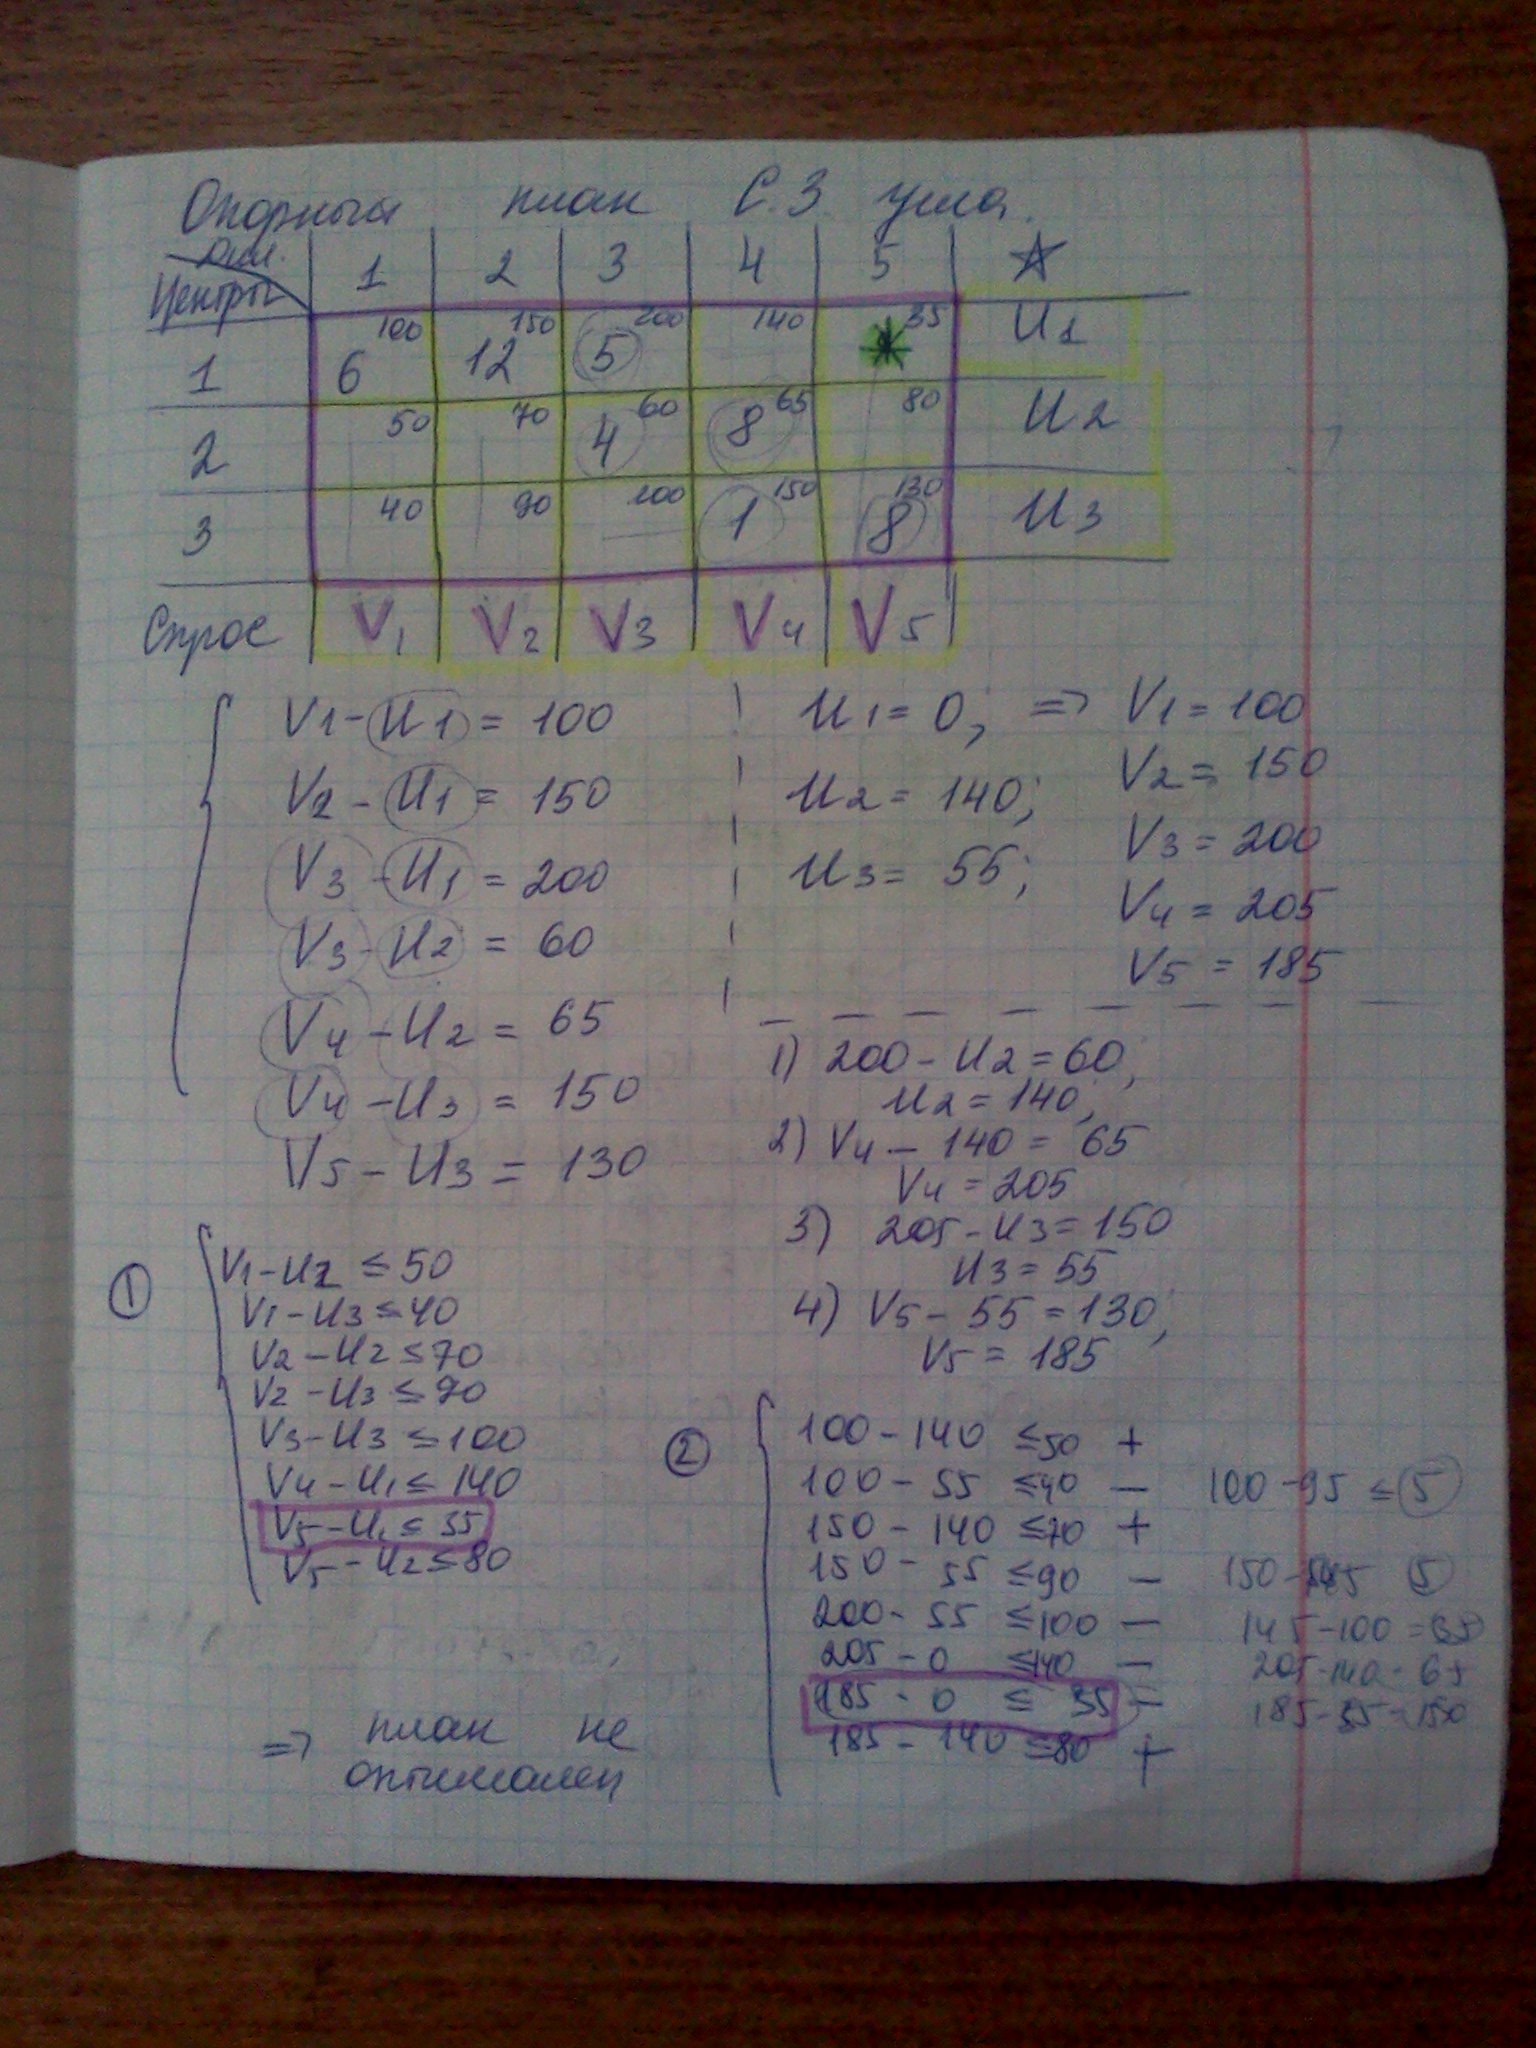 Опорный план С.З. угла.
Центры 1 2 3 4 5
100 150 200 140 35
1 6 12 5 U1
50 70 60 65 80
2 4 8 U2
40 90 100 150 130
3 1 8 U3
Спрос V1 V2 V3 V4 V5
V1 - U1 = 100
V2 - U1 = 150
V3 - U1 = 200
V3 - U2 = 60
V4 - U2 = 65
V4 - U3 = 150
V5 - U3 = 130
U1 = 0; => V1 = 100
U2 = 140; V2 = 150
U3 = 55; V3 = 200
V4 = 205
V5 = 185
1) 200 - U2 = 60;
U2 = 140;
2) V4 - 140 = 65
V4 = 205
3) 205 - U3 = 150
U3 = 55
4) V5 - 55 = 130;
V5 = 185
1
V1 - U2 ≤ 50
V1 - U3 ≤ 40
V2 - U2 ≤ 70
V2 - U3 ≤ 90
V3 - U3 ≤ 100
V4 - U1 ≤ 140
V5 - U1 ≤ 35
V5 - U2 ≤ 80
2
100 - 140 ≤ 50 +
100 - 55 ≤ 40 - 100 - 95 ≤ 5
150 - 140 ≤ 70 +
150 - 55 ≤ 90 - 5
200 - 55 ≤ 100 - 145 - 100 =
205 - 0 ≤ 140 - 205 - 140 = 65
185 - 0 ≤ 35 - 185 - 35 = 150
185 - 140 ≤ 80 +
=> план не
оптимален